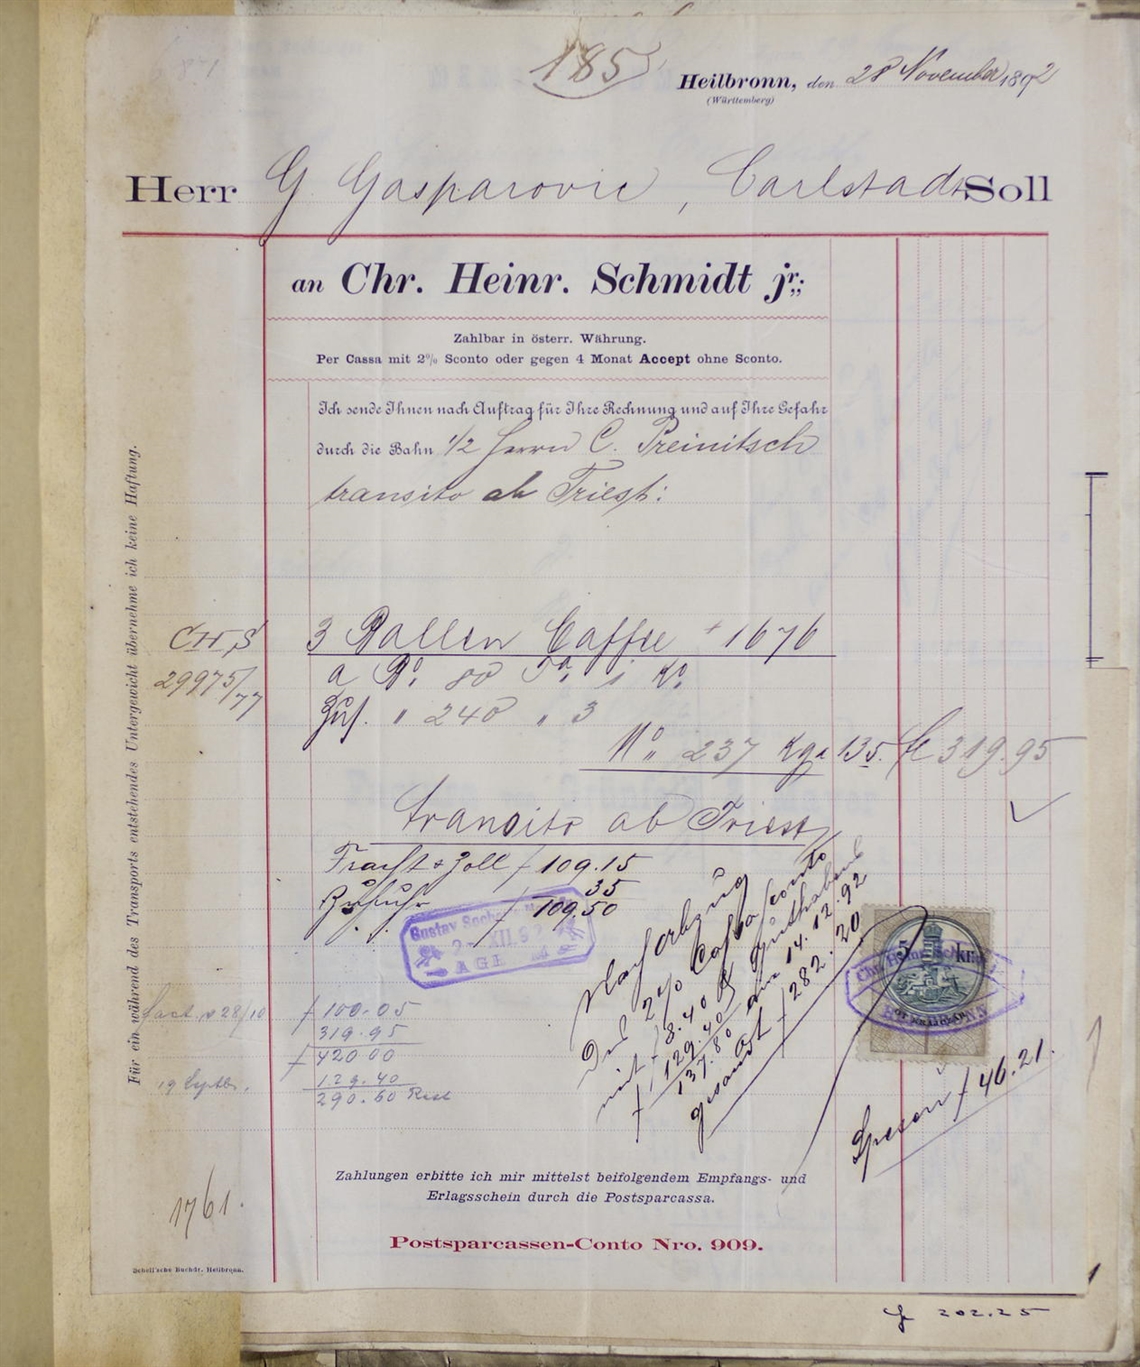 185
Heilbronn, den 28 November 1892
(Württemberg)
Herr G Gasparovic, Carlstadt Soll
an Chr. Heinr. Schmidt jr.,
Zahlbar in österr. Währung.
Per Cassa mit 2% Sconto oder gegen 4 Monat Accept ohne Sconto.
Ich sende Ihnen nach Auftrag für Ihre Rechnung und auf Ihre Gefahr
durch die Bahn 1/2 Herrn C. Preinitsch
transito ab Triest:
Für ein während des Transports entstehendes Untergewicht übernehme ich keine Haftung.
CHS 3 Ballen Caffee + 1676
29975/77 a Bo. 80 Ta. 1 Ko.
Zus. " 240 " 3
No. 237 Kga 135. fl 319.95
transito ab Triest
Fracht & Zoll f 109.15
Zufuhr 35
f 109.50
Gustav
2 - XII. 92
AGR
Nach abzug
Des 2% Cassa sconto
mit f 8.40 & Guthabens
f 129.40 am 14.12.92
137.80
gesandt f 282.20
5 kr.
Chr. Heinr. Schmidt
HEILBRONN
fact. v 28/10 f 100.05
319.95
f 420 00
19 Septbr. 129.40
290.60 Rest
Spesen f 46.21.
1761.
Zahlungen erbitte ich mir mittelst beifolgendem Empfangs- und
Erlagsschein durch die Postsparcassa.
Postsparcassen-Conto Nro. 909.
Schell'sche Buchdr. Heilbronn.
f 202.25